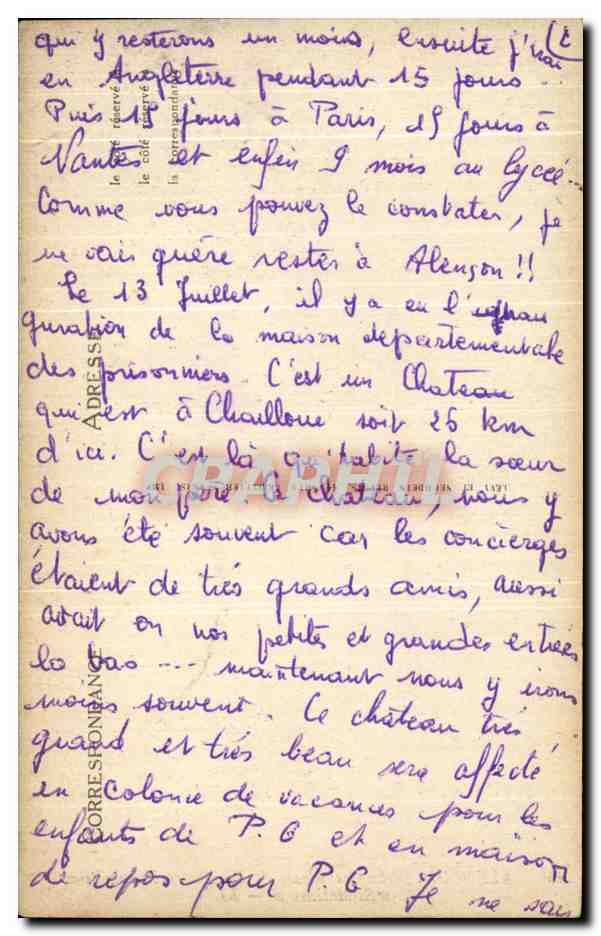 2
qui y resterons un mois, ensuite j'irai
en Angleterre pendant 15 jours ..
Puis 15 jours à Paris, 15 jours à
Nantes et enfin 9 mois au lycée...
Comme vous pouvez le constater, je
ne vais guère rester à Alençon !!
Le 13 Juillet, il y a eu l'inau
guration de la maison departementale
des prisonniers. C'est un Chateau
qui est à Chailloue soit 25 km
d'ici. C'est là qu'habite la sœur
de mon père. Ce château, nous y
avons été souvent car les concierges
étaient de très grands amis, aussi
avait on nos petites et grandes entrées
là bas --- maintenant nous y irons
moins souvent. Ce château très
grand et très beau sera affecté
en colonie de vacances pour les
enfants de P. G et en maison
de repos pour P. G Je ne sais
ADRESSE
CORRESPONDANCE
le côté réservé
le côté réservé
la correspondance
CRAPHIL